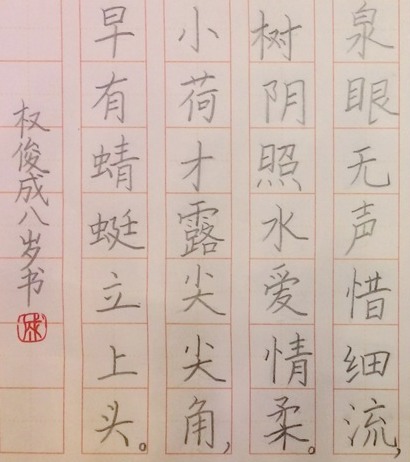 泉眼无声惜细流,
树阴照水爱情柔。
小荷才露尖尖角,
早有蜻蜓立上头。
权俊成八岁书
成